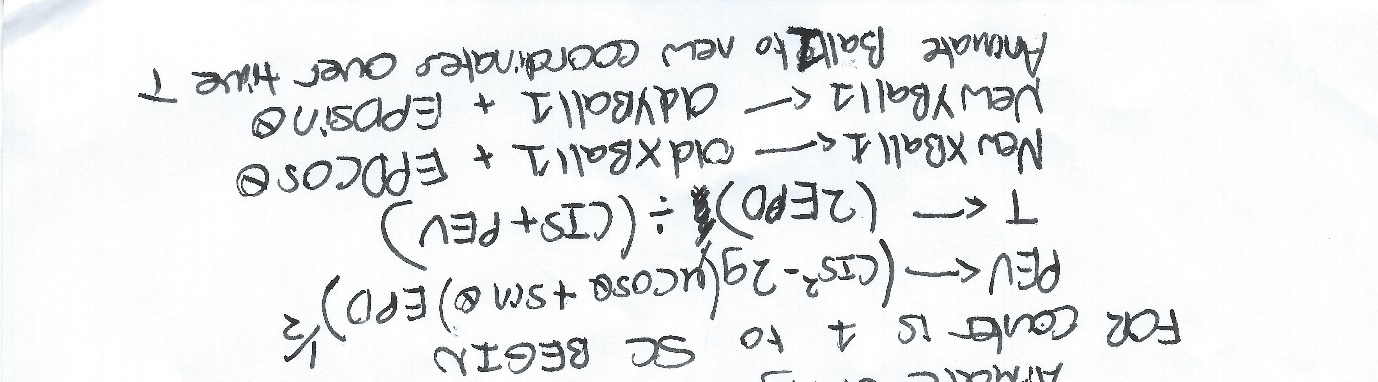 FOR counter is 1 to SC BEGIN
PEV <— (CIS²-2g(μcosθ+sinθ)EPD)^1/2
T <— (2EPD) ÷ (CIS+PEV)
NewXBall1 <— oldXBall1 + EPDcosθ
NewYBall1 <— oldYBall1 + EPDsinθ
Animate Ball1 to new coordinates over time T